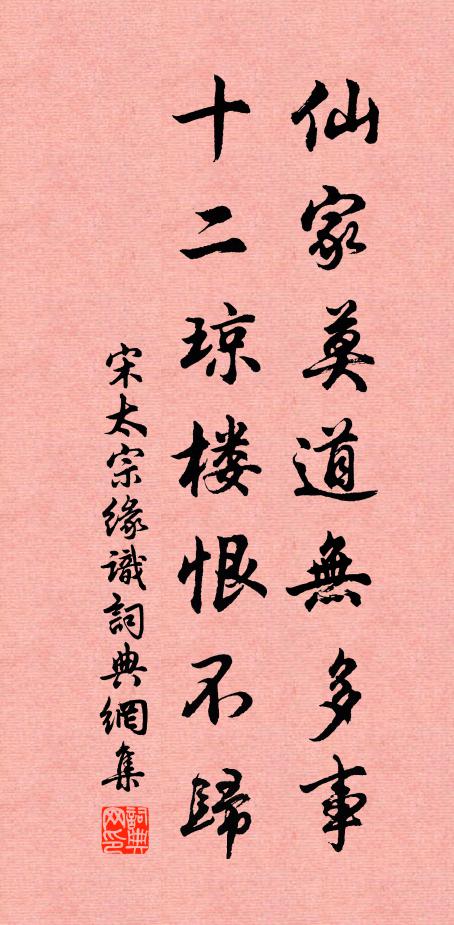 仙家莫道無多事
十二琼楼恨不歸
宋太宗缘識詞典網集
詞典网印